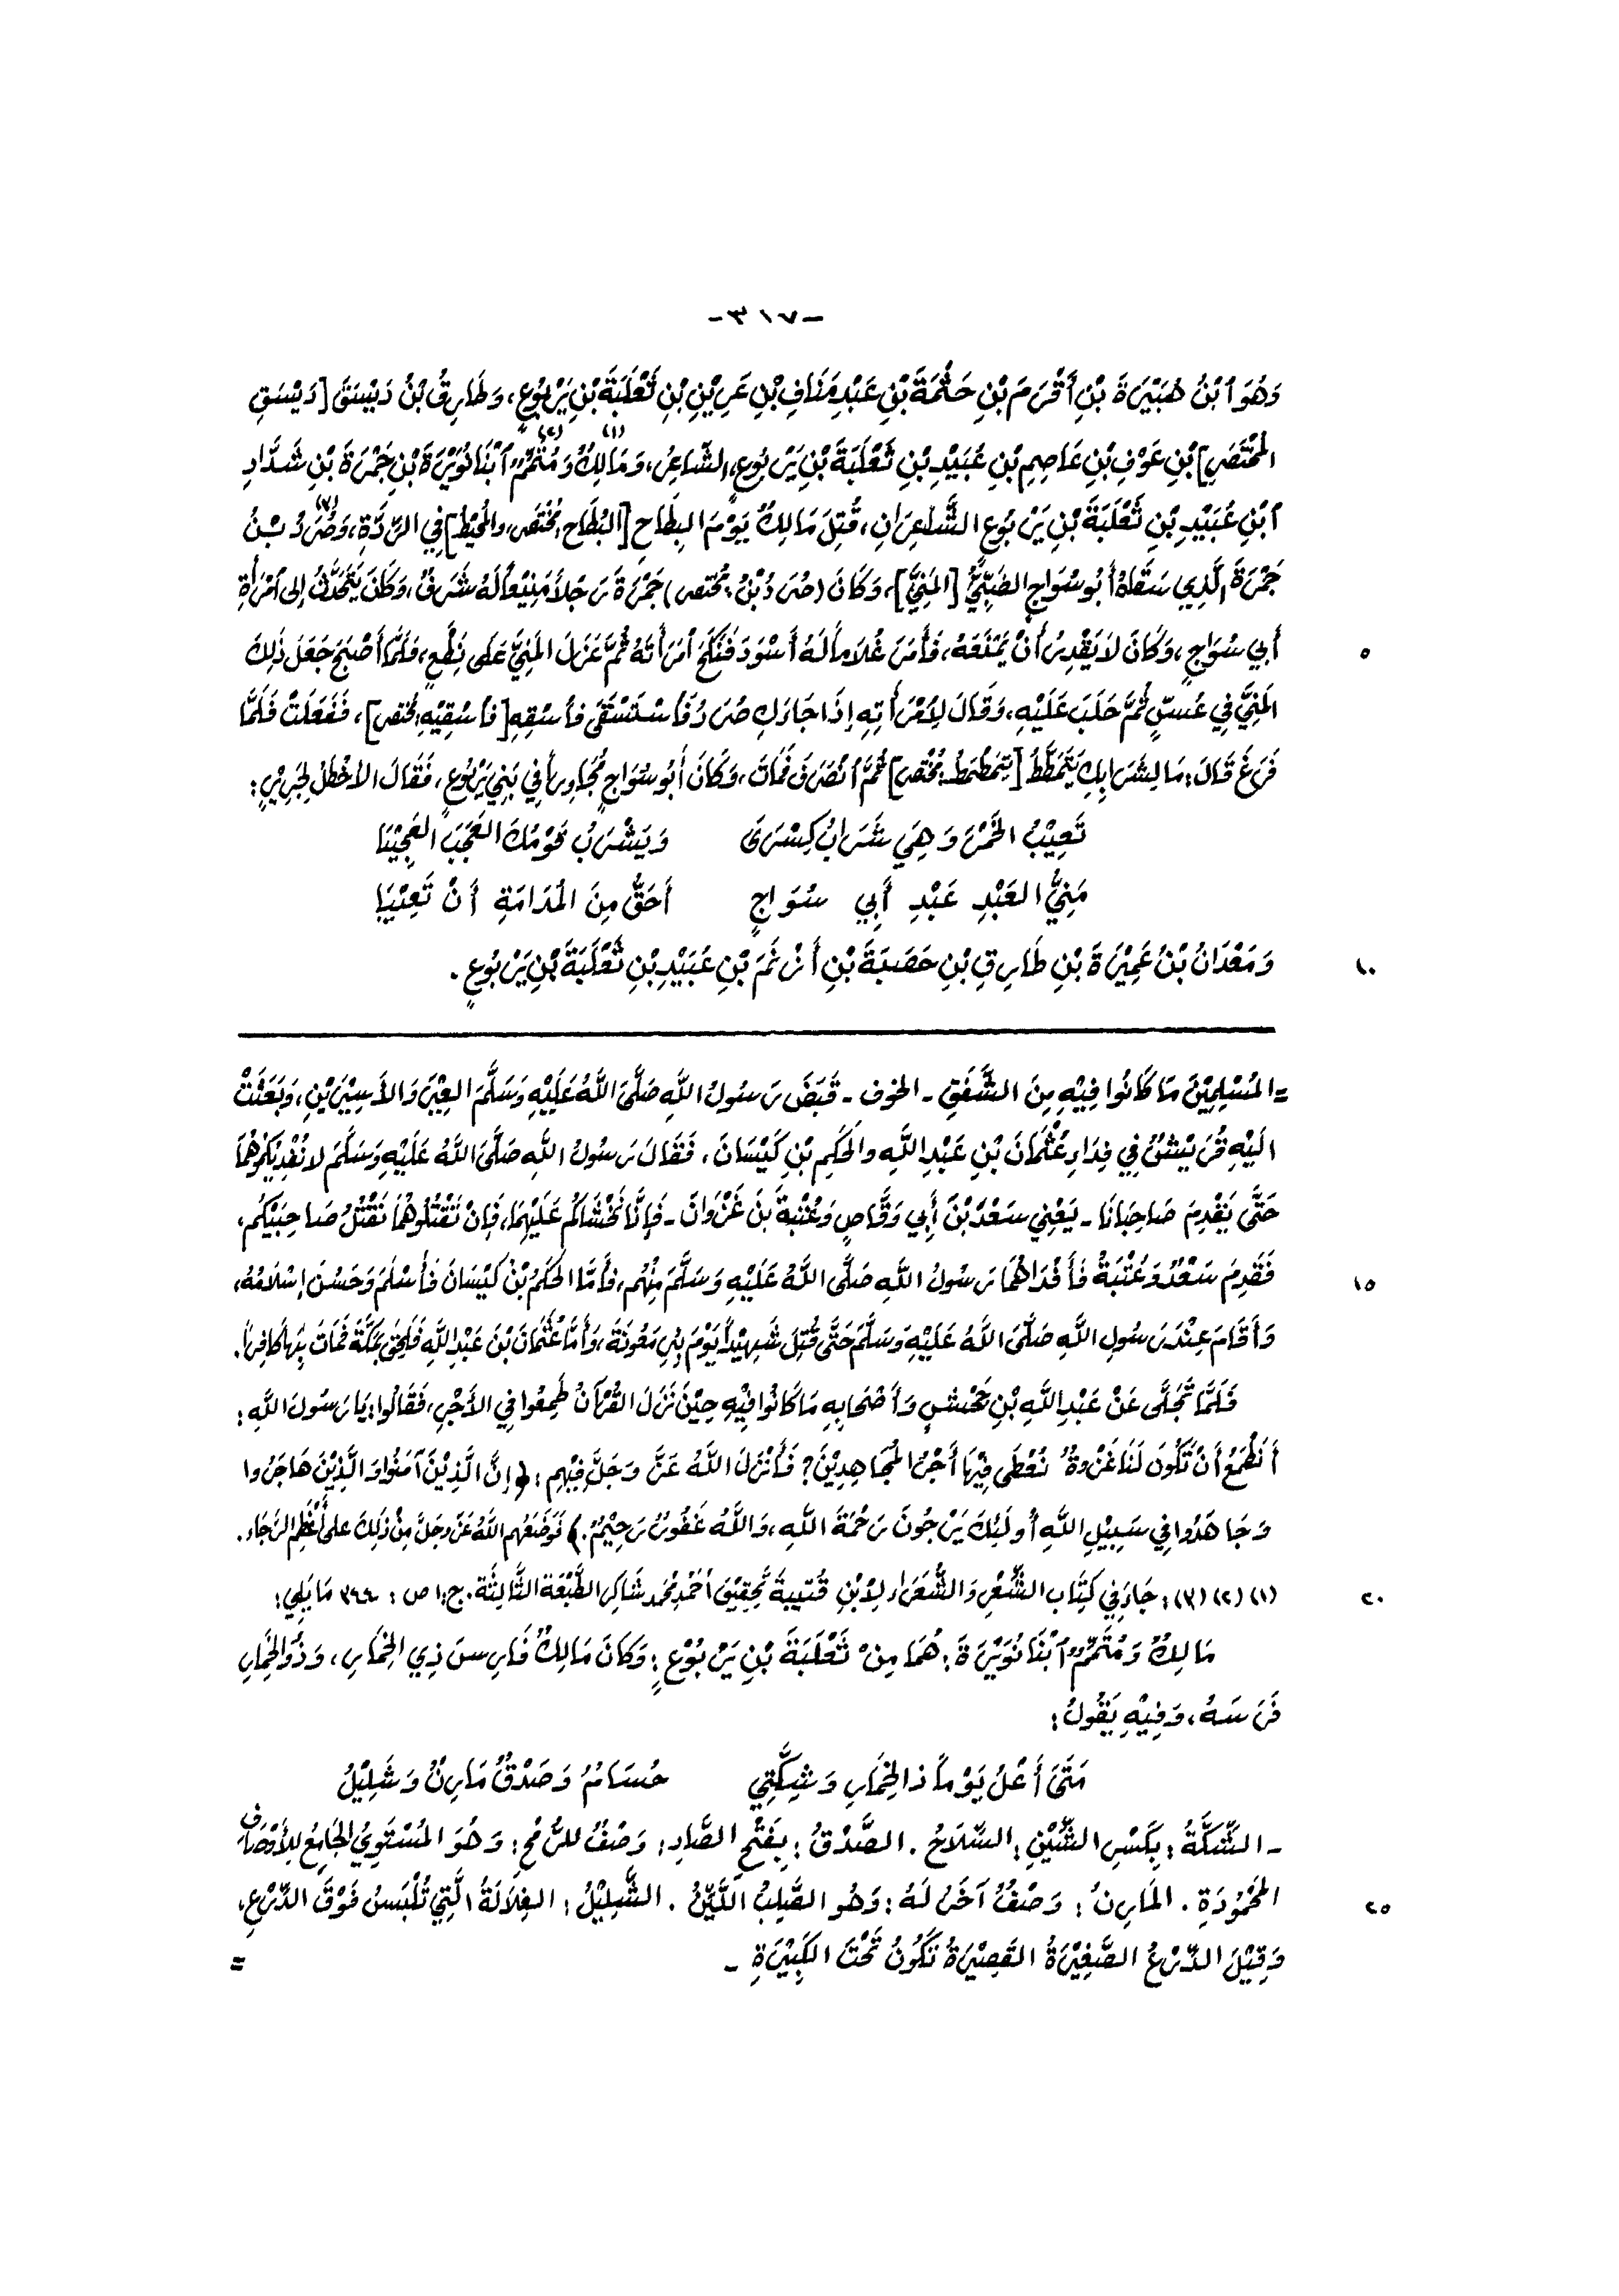 -٣١٧-
وَهُوَ ٱبْنُ هُبَيْرَةَ بْنِ أَقْرَمَ بْنِ حَثْمَةَ بْنِ عَبْدِ مَنَافِ بْنِ عَرِيْنِ بْنِ ثَعْلَبَةَ بْنِ يَرْبُوعٍ، وَطَارِقُ بْنُ دَيْسَقَ [دَيْسَقِ
المُخْتَصَرِ] بْنِ عَوْفِ بْنِ عَاصِمِ بْنِ عُبَيْدِ بْنِ ثَعْلَبَةَ بْنِ يَرْبُوعٍ، الشَّاعِرُ، وَمَالِكٌ (١) وَمُتَمِّمٌ (٢) ٱبْنَا نُوَيْرَةَ بْنِ جَمْرَةَ بْنِ شَدَّادِ
ٱبْنِ عُبَيْدِ بْنِ ثَعْلَبَةَ بْنِ يَرْبُوعٍ الشَّاعِرَانِ، قُتِلَ مَالِكٌ يَوْمَ البِطَاحِ [البُطَاح، مُخْتَصَر، والمُحِيْط] فِي الرِّدَّةِ، وَصُرَدُ (٣) بْنُ
جَمْرَةَ الَّذِي سَقَاهُ أَبُو سُوَاجٍ الضَّبِّيُّ [المَنِيَّ]، وَكَانَ (صُرَدُ بْنُ: مُخْتصر) جَمْرَةَ رَجُلاً مَنِيْعاً لَهُ شَرَفٌ، وَكَانَ يَتَحَدَّثُ إلى ٱمْرَأَةِ
أَبِي سُوَاجٍ، وَكَانَ لاَ يَقْدِرُ أَنْ يَمْنَعَهُ، فَأَمَرَ غُلاَماً لَهُ أَسْوَدَ فَنَكَحَ ٱمْرَأَتَهُ ثُمَّ عَزَلَ المَنِيَّ عَلَى نِطْعٍ، فَلَمَّا أَصْبَحَ جَعَلَ ذَلِكَ
٥
المَنِيَّ فِي عُسٍّ ثُمَّ حَلَبَ عَلَيْهِ، وَقَالَ لِامْرَأَتِهِ إِذَا جَاءَكِ صُرَدُ فَٱسْتَسْقَى فٱسْقِهِ [فٱسْقِيْهِ: مُختصر]، فَفَعَلَتْ فَلَمَّا
فَرَغَ قَالَ: مَا لِشَرَابِكِ يَتَمَطَّطُ [يَتَمَطْمَطُ: مُخْتَصر] ثُمَّ ٱنْصَرَفَ فَمَاتَ، وَكَانَ أَبُو سُوَاجٍ مُجَاوِراً فِي بَنِي يَرْبُوعٍ، فَقَالَ الأَخْطَلُ لِجَرِيْرٍ:
تَعِيْبُ الخَمْرَ وَهِيَ شَرَابُ كِسْرَى وَيَشْرَبُ قَوْمُكَ العَجَبَ العَجِيْبَا
مَنِيُّ العَبْدِ عَبْدِ أَبِي سُوَاجٍ أَحَقُّ مِنَ المُدَامَةِ أَنْ تَعِيْبَا
وَمَعْدَانُ بْنُ عَمِيْرَةَ بْنِ طَارِقِ بْنِ حَصَبَةَ بْنِ أَزْنَمَ بْنِ عُبَيْدِ بْنِ ثَعْلَبَةَ بْنِ يَرْبُوعٍ.
١٠
= المُسْلِمِيْنَ مَا كَانُوا فِيْهِ مِنَ الشَّفَقِ - الخوف - قَبَضَ رَسُولُ اللَّهِ صَلَّى اللَّهُ عَلَيْهِ وَسَلَّمَ العِيْرَ وَالأَسِيْرَيْنِ، وَبَعَثَتْ
الَيْهِ قُرَيْشٌ فِي فِدَاءِ عُثْمَانَ بْنِ عَبْدِ اللَّهِ والحَكَمِ بْنِ كَيْسَانَ، فَقَالَ رَسُولُ اللَّهِ صَلَّى اللَّهُ عَلَيْهِ وَسَلَّمَ لا نُفْدِيْكُمُوهُمَا
حَتَّى يَقْدِمَ صَاحِبَانَا - يَعْنِي سَعْدَ بْنَ أَبِي وَقَّاصٍ وَعُتْبَةَ بْنَ غَزْوَانَ - فَإِنَّا نَخْشَاكُمْ عَلَيْهِمَا، فَإِنْ تَقْتُلُوهُمَا نَقْتُلُ صَاحِبَيْكُمْ،
فَقَدِمَ سَعْدٌ وَعُتْبَةُ فَأَفْدَاهُمَا رَسُولُ اللَّهِ صَلَّى اللَّهُ عَلَيْهِ وَسَلَّمَ مِنْهُم، فَأَمَّا الحَكَمُ بْنُ كَيْسَانَ فَأَسْلَمَ وَحَسُنَ إِسْلَامُهُ،
١٥
وَأَقَامَ عِنْدَ رَسُولِ اللَّهِ صَلَّى اللَّهُ عَلَيْهِ وَسَلَّمَ حَتَّى قُتِلَ شَهِيْداً يَوْمَ بِئْرِ مَعُونَةَ، وَأَمَّا عُثْمَانُ بْنَ عَبْدِ اللَّهِ فَلَحِقَ بِمَكَّةَ فَمَاتَ بِهَا كَافِراً.
فَلَمَّا تَجَلَّى عَنْ عَبْدِ اللَّهِ بْنِ جَحْشٍ وَأَصْحَابِهِ مَا كَانُوا فِيْهِ حِيْنَ نَزَلَ القُرْآنُ طَمِعُوا فِي الأَجْرِ، فَقَالُوا: يَا رَسُولَ اللَّهِ:
أَنَطْمَعُ أَنْ تَكُونَ لَنَا غَزْوَةٌ نُعْطَى فِيْهَا أَجْرَ المُجَاهِدِيْنَ؟ فَأَنْزَلَ اللَّهُ عَزَّ وَجَلَّ فِيْهِم: ﴿إِنَّ الَّذِيْنَ آمَنُوا وَالَّذِيْنَ هَاجَرُوا
وَجَاهَدُوا فِي سَبِيْلِ اللَّهِ أُولَئِكَ يَرْجُونَ رَحْمَةَ اللَّهِ، وَاللَّهُ غَفُورٌ رَحِيْمٌ.﴾ فَوَضَعَهُم اللَّهُ عَزَّ وَجَلَّ مِنْ ذَلِكَ على أَعْظَمِ الرَّجَاءِ.
(١) (٢) (٣): جَاءَ فِي كِتَابِ الشِّعْرِ وَالشُّعَرَاءِ لِابْنِ قُتَيْبَةَ تَحْقِيْقِ أَحْمَدْ مُحَمَّد شَاكِر الطَّبْعَة الثَّالِثَة. ج: ١ ص: ٣٤٤ مَا يَلِي:
٢٠
مَالِكٌ وَمُتَمِّمٌ ٱبْنَا نُوَيْرَةَ: هُمَا مِنْ ثَعْلَبَةَ بْنِ يَرْبُوْعٍ: وَكَانَ مَالِكٌ فَارِسَ ذِي الخِمَارِ، وَذُو الخِمَارِ
فَرَسَهُ، وَفِيْهِ يَقُولُ:
مَتَى أَعْلُ يَوْماً ذا الخِمَارِ وَشِكَّتِي حُسَامٌ وَصَدْقٌ مَارِنٌ وَشَلِيْلُ
- الشِّكَّةُ: بِكَسْرِ الشِّيْنِ: السِّلَاحُ. الصَّدْقُ: بِفَتْحِ الصَّادِ: وَصْفٌ للرُّمْحِ: وَهُوَ المُسْتَوِيُ الجَامِعُ لِلأَوْصَافِ
المَحْمُوْدَةِ. المَارِنُ: وَصْفٌ آخَرُ لَهُ: وَهُو الصَّلِبُ اللَّيِّنُ. الشَّلِيْلُ: الغِلاَلَةُ الَّتِي تُلْبَسُ فَوْقَ الدِّرْعِ،
٢٥
وَقِيْلَ الدِّرْعُ الصَّغِيْرَةُ القَصِيْرَةُ تَكُونُ تَحْتَ الكَبِيْرَةِ -
=